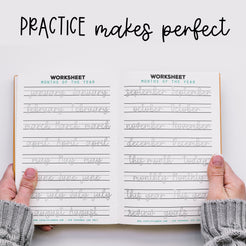 PRACTICE makes perfect
WORKSHEET
MONTHS OF THE YEAR
january january
february february
march march march
april april april
may may may
june june june
july july july
august august
WORKSHEET
MONTHS OF THE YEAR
september september
october october
november november
december december
this month today
monthly monthly
this year this year
review goals